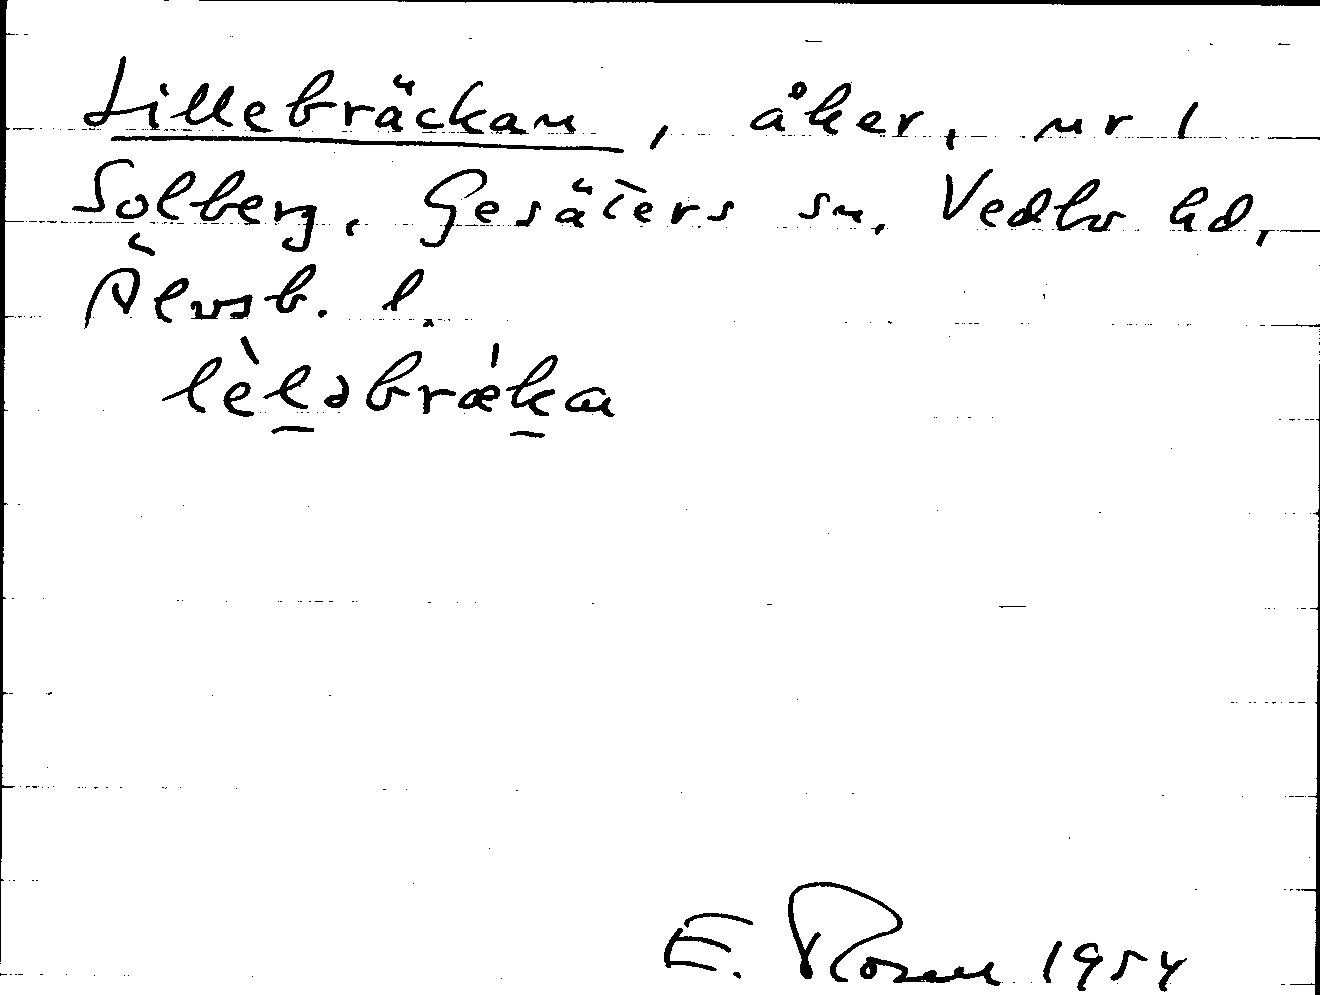 Lillebräckan, åker, nr 1
Solberg, Gesäters sn, Vedbo hd,
Älvsb. l.
lèləbrækan
E. Rosen 1954